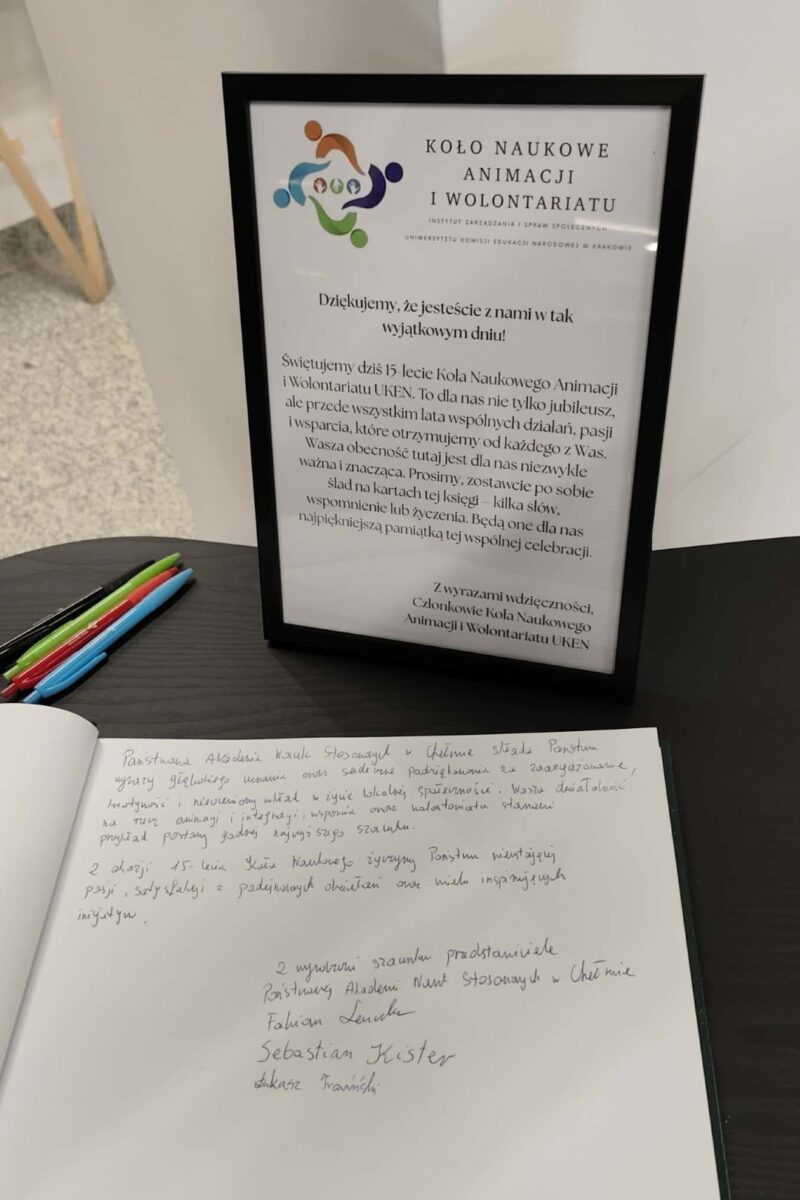 KOŁO NAUKOWE
ANIMACJI
I WOLONTARIATU
INSTYTUT ZARZĄDZANIA I SPRAW SPOŁECZNYCH
UNIWERSYTETU KOMISJI EDUKACJI NARODOWEJ W KRAKOWIE
Dziękujemy, że jesteście z nami w tak
wyjątkowym dniu!
Świętujemy dziś 15-lecie Koła Naukowego Animacji
i Wolontariatu UKEN. To dla nas nie tylko jubileusz,
ale przede wszystkim lata wspólnych działań, pasji
i wsparcia, które otrzymujemy od każdego z Was.
Wasza obecność tutaj jest dla nas niezwykle
ważna i znacząca. Prosimy, zostawcie po sobie
ślad na kartach tej księgi – kilka słów,
wspomnienie lub życzenia. Będą one dla nas
najpiękniejszą pamiątką tej wspólnej celebracji.
Z wyrazami wdzięczności,
Członkowie Koła Naukowego
Animacji i Wolontariatu UKEN
Państwowa Akademia Nauk Stosowanych w Chełmie składa Państwu
wyrazy głębokiego uznania oraz serdeczne podziękowania za zaangażowanie,
kreatywność i nieoceniony wkład w życie lokalnej społeczności. Wasza działalność
na rzecz animacji i integracji, wsparcia oraz wolontariatu stanowi
przykład postawy godnej najwyższego szacunku.
Z okazji 15-lecia Koła Naukowego życzymy Państwu nieustającej
pasji, satysfakcji z podejmowanych działań oraz wielu inspirujących
inicjatyw.
Z wyrazami szacunku przedstawiciele
Państwowej Akademii Nauk Stosowanych w Chełmie
Fabian
Sebastian Kister
Łukasz